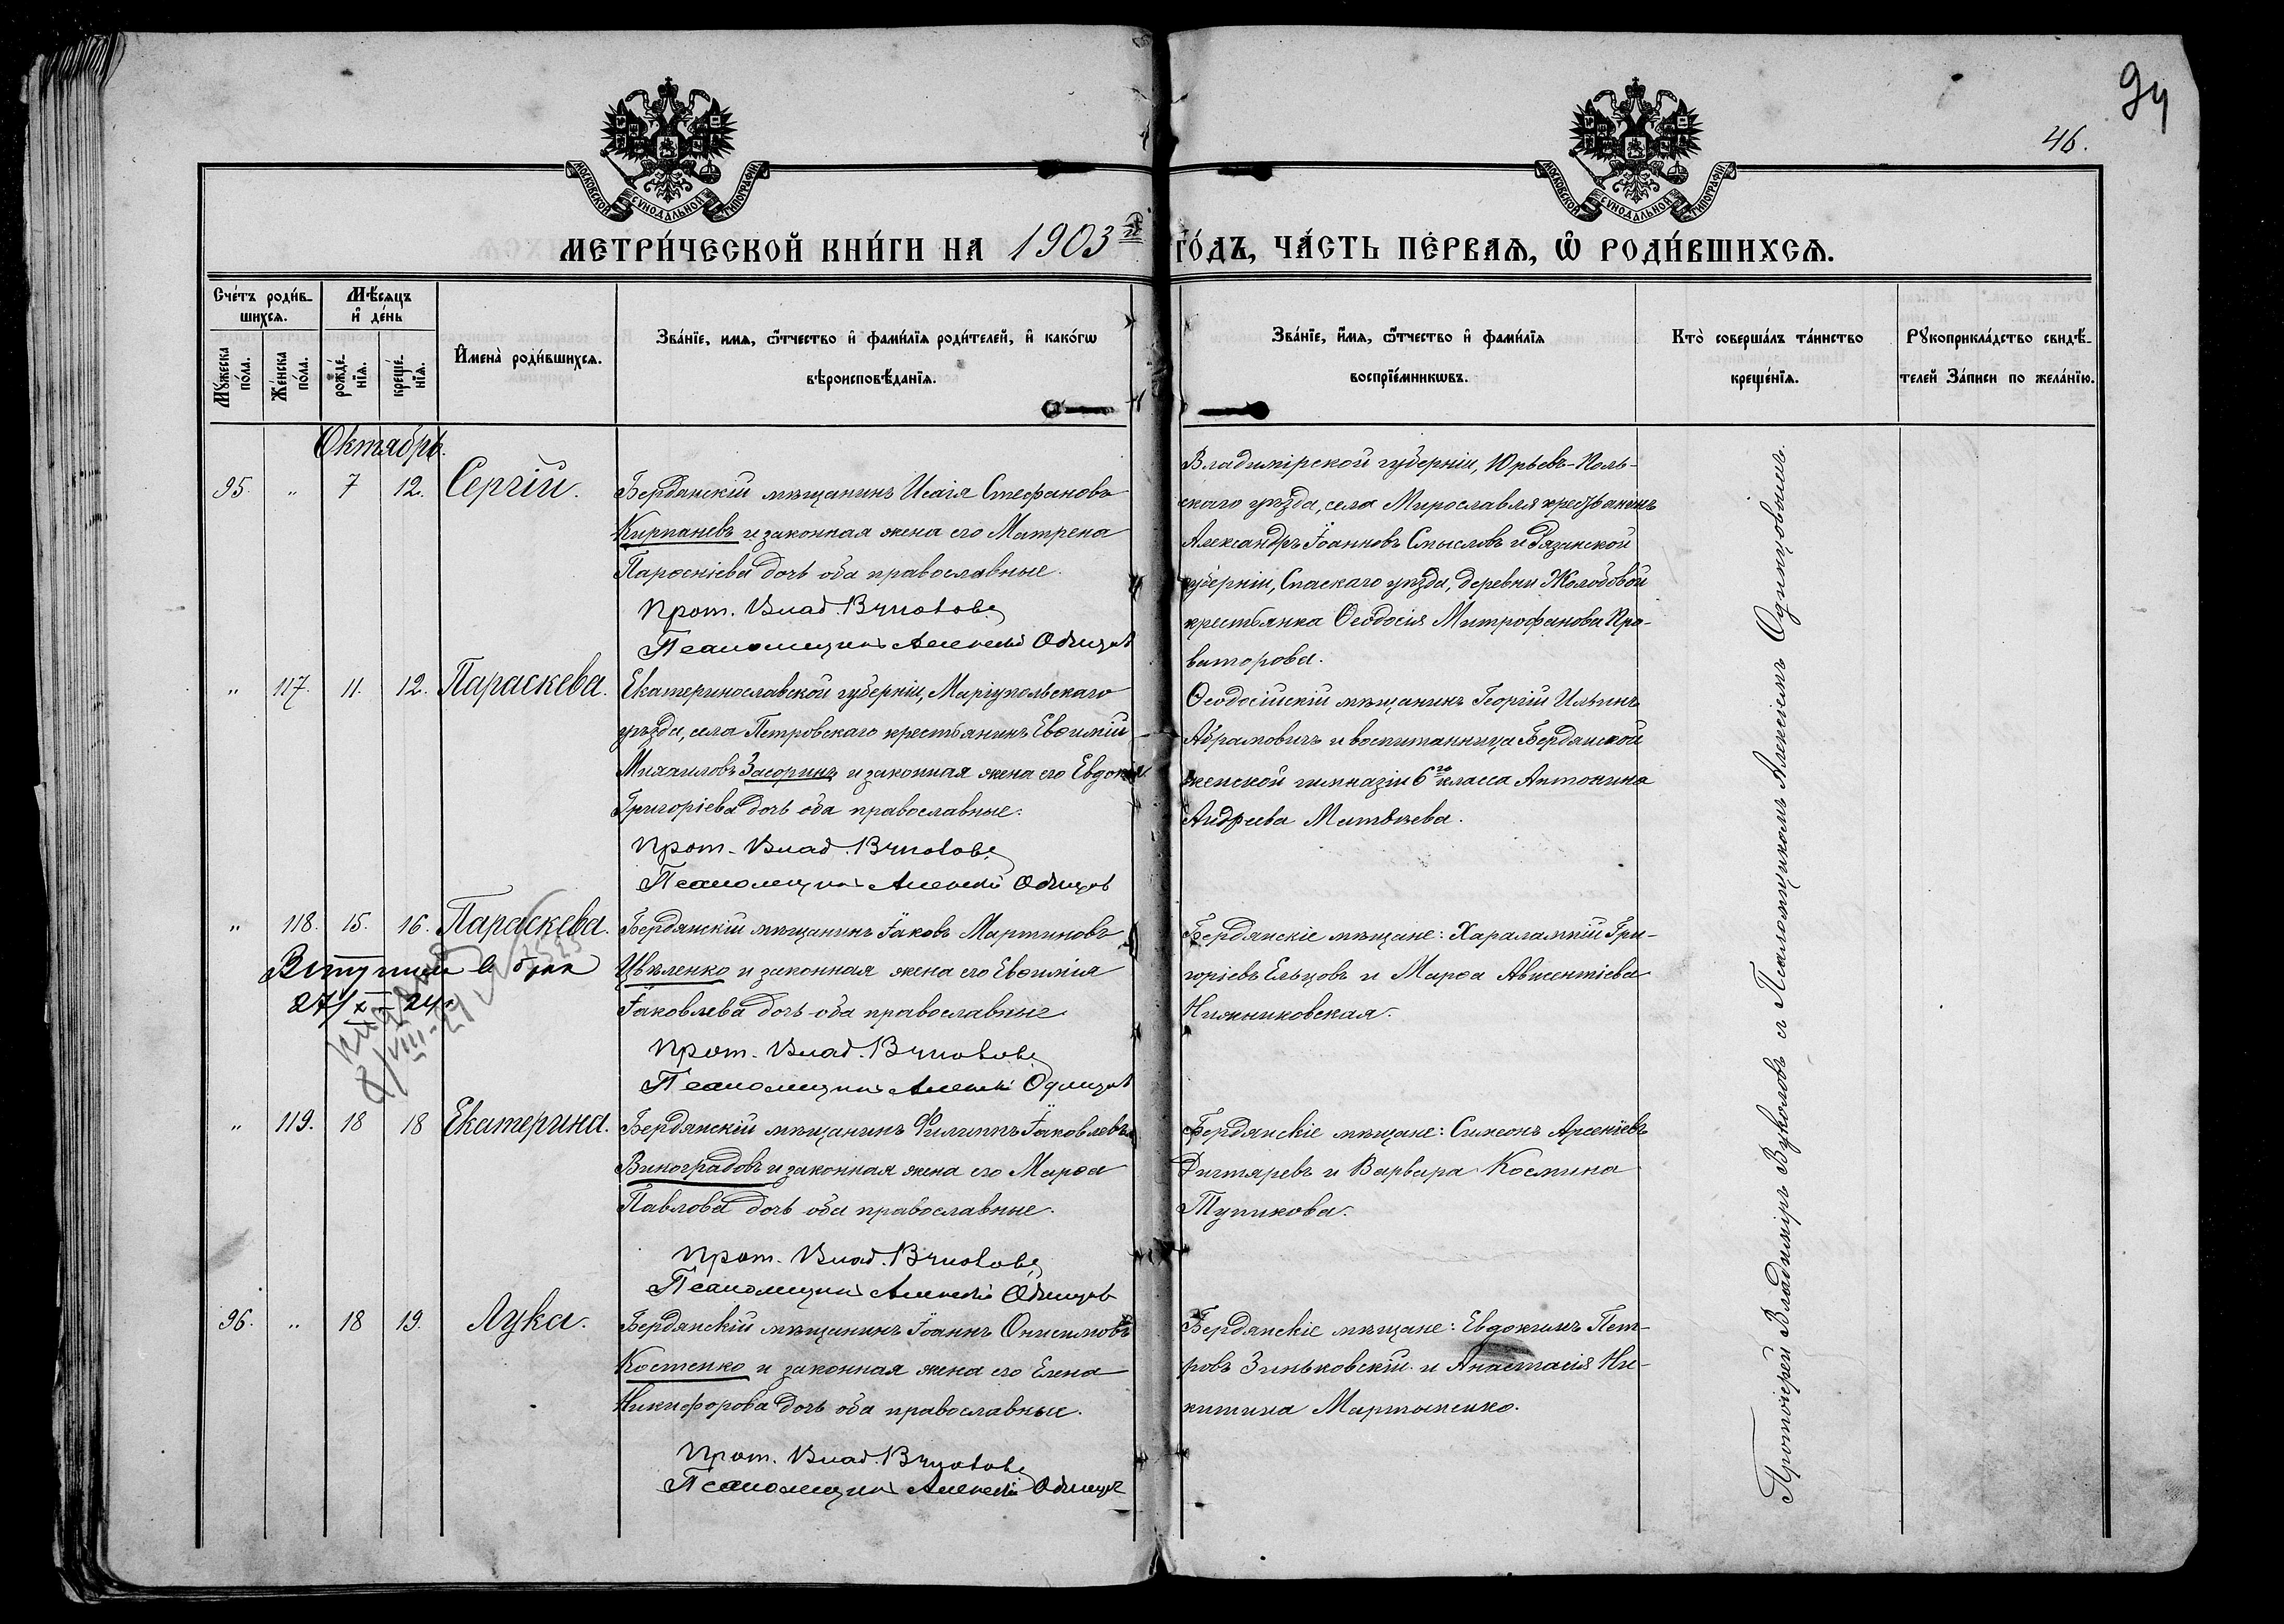 94
46.
МОСКОВСКОЙ СѴНОДАЛЬНОЙ ТИПОГРАФІИ
МОСКОВСКОЙ СѴНОДАЛЬНОЙ ТИПОГРАФІИ
МЕТРИ́ЧЕСКОЙ КНИ́ГИ НА 1903й ГО́ДЪ, ЧА́СТЬ ПЕ́РВАѦ, Ѡ҆ РОДИ́ВШИХСѦ.
Сче́тъ роди́в-
шихсѧ.
Мꙋ́жеска по́ла.
Же́нска по́ла.
Мѣ́сяцъ
и҆ де́нь
рожде́нїѧ.
креще́нїѧ.
И҆мена̀ роди́вшихсѧ.
Зва́нїе, имѧ, ѻ҆́тчество и҆ фами́лїѧ роди́телей, и҆ како́гѡ
вѣроисповѣ́данїѧ.
Зва́нїе, и҆́мѧ, ѻ҆́тчество и҆ фами́лїѧ
воспрїе́мникѡвъ.
Кто̀ соверша́лъ та́инство
креще́нїѧ.
Рꙋкоприкла́дство свидѣ́-
телей За́писи по жела́нїю.
Октябрь.
95. " 7 12. Сергій.
Бердянскій мѣщанинъ Исаія Стефановъ
Кирпаневъ и законная жена его Матрена
Парѳеніева дочь оба православные.
Прот. Влад. Вуколовъ
Псаломщикъ Алексей Одинцовъ
Владимірской губерніи, Юрьевъ-Поль-
скаго уѣзда, села Мирославля крестьянинъ
Александръ Іоанновъ Смысловъ и Рязанской
губерніи, Спаскаго уѣзда, деревни Жолобовой
крестьянка Ѳеодосія Митрофанова Про-
ваторова.
" 117. 11. 12. Параскева.
Екатеринославской губерніи, Маріупольскаго
уѣзда, села Петровскаго крестьянинъ Евѳимій
Михаиловъ Засоринъ и законная жена его Евдокія
Григоріева дочь оба православные.
Прот. Влад. Вуколовъ
Псаломщикъ Алексей Одинцовъ
Ѳеодосійскій мѣщанинъ Георгій Ильинъ
Абрамовичъ и воспитанница Бердянской
женской гимназіи 6го класса Антонина
Андреева Матвѣева.
" 118. 15. 16. Параскева.
Вступила в брак
27/XI 24
8/VIII-29
Бердянскій мѣщанинъ Іаковъ Мартиновъ
Цвѣленко и законная жена его Евѳимія
Іаковлева дочь оба православные
Прот. Влад. Вуколовъ
Псаломщикъ Алексей Одинцовъ
Бердянскіе мѣщане: Харалампій Гри-
горіевъ Ельцовъ и Марѳа Авксентіева
Нижниковская.
" 119. 18 18 Екатерина.
Бердянскій мѣщанинъ Филиппъ Іаковлевъ
Виноградовъ и законная жена его Марѳа
Павлова дочь оба православные.
Прот. Влад. Вуколовъ
Псаломщикъ Алексей Одинцовъ
Бердянскіе мѣщане: Симеонъ Арсеніевъ
Дигтяревъ и Варвара Космина
Тупикова.
96. " 18 19. Лука.
Бердянскій мѣщанинъ Іоаннъ Онисимовъ
Костенко и законная жена его Елена
Никифорова дочь оба православные.
Прот. Влад. Вуколовъ
Псаломщикъ Алексей Одинцовъ
Бердянскіе мѣщане: Евдокимъ Пет-
ровъ Зиньковскій и Анастасія Ни-
китина Мартыненко.
Протоіерей Владиміръ Вуколовъ съ Псаломщикомъ Алексіемъ Одинцовымъ.